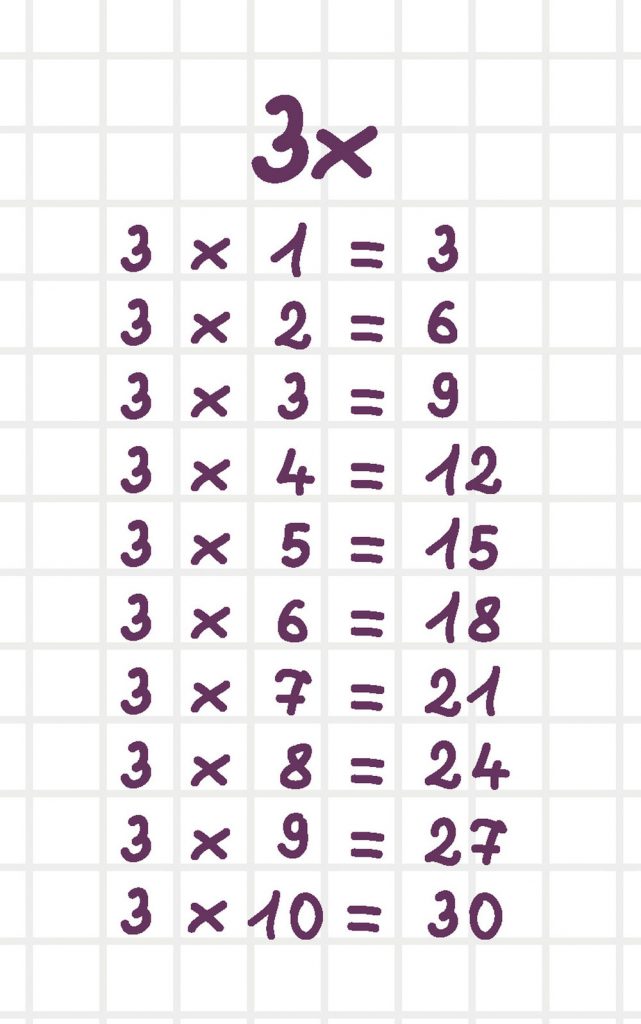 3×
3 × 1 = 3
3 × 2 = 6
3 × 3 = 9
3 × 4 = 12
3 × 5 = 15
3 × 6 = 18
3 × 7 = 21
3 × 8 = 24
3 × 9 = 27
3 × 10 = 30